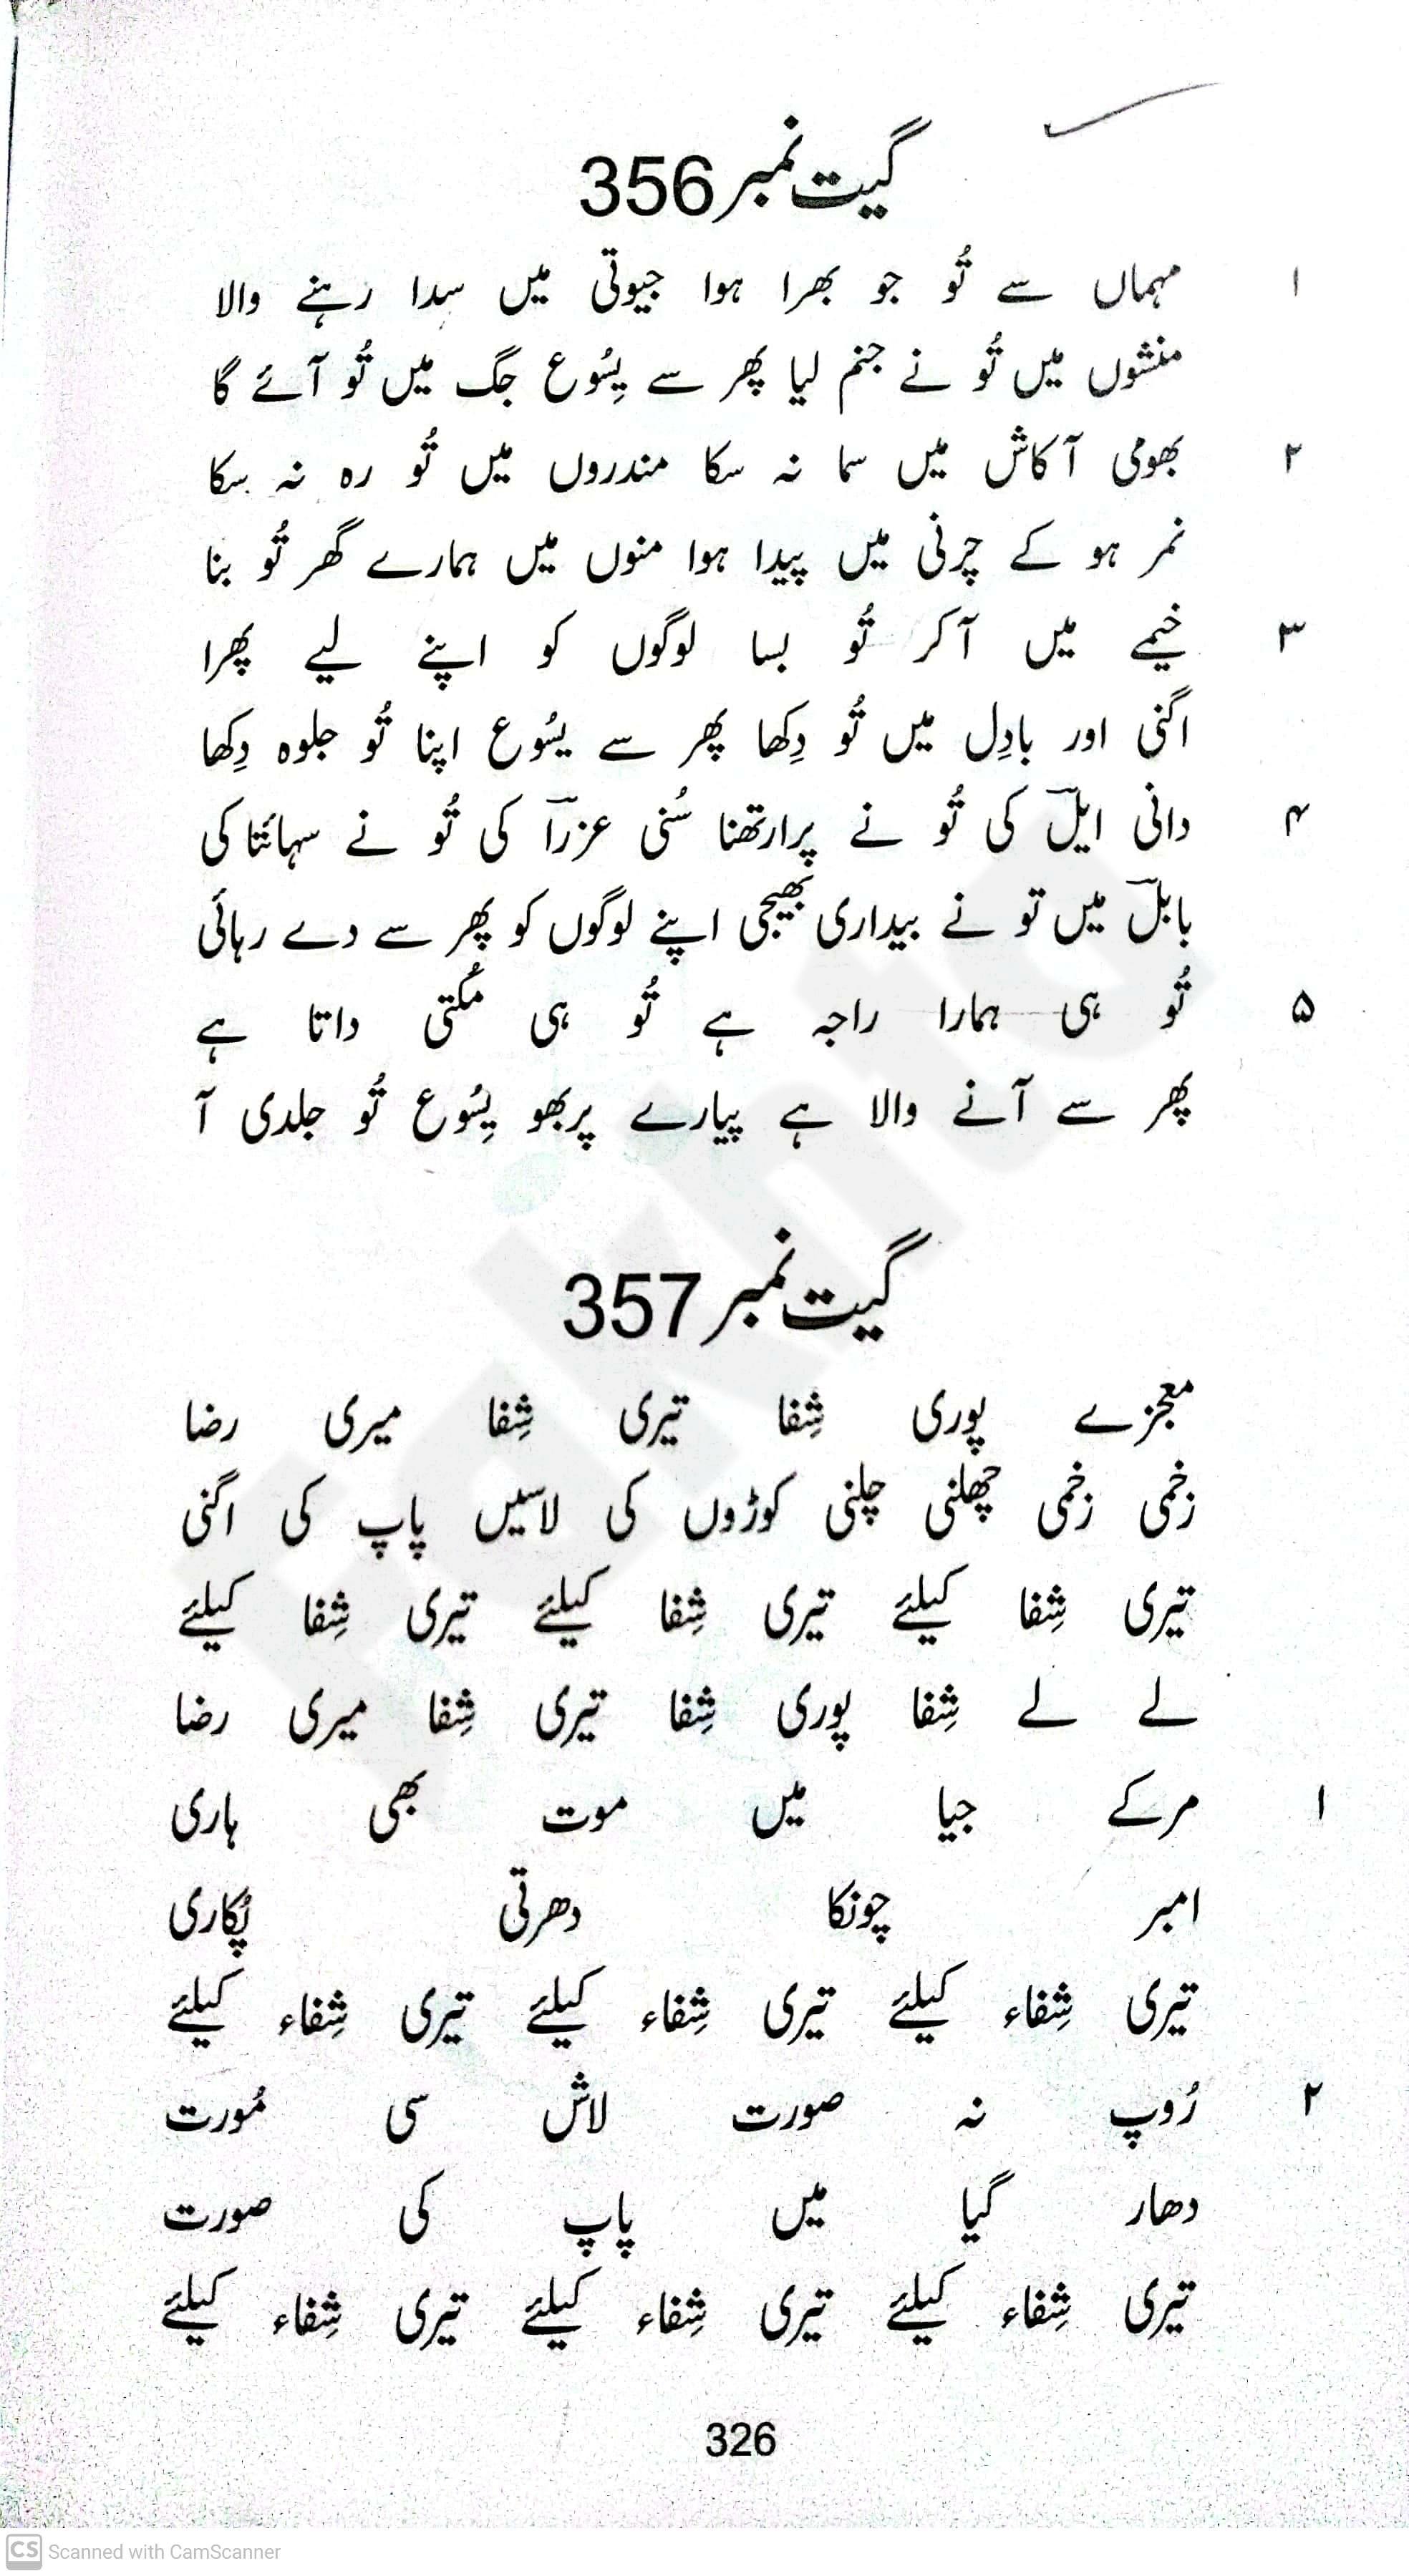 گیت نمبر 356
۱ مہماں سے تُو جو بھرا ہوا جیوتی میں سدا رہنے والا
منشوں میں تُو نے جنم لیا پھر سے یِسُوع جگ میں تُو آئے گا
۲ بھومی آکاش میں سما نہ سکا مندروں میں تُو رہ نہ سکا
نمر ہو کے چرنی میں پیدا ہوا منوں میں ہمارے گھر تُو بنا
۳ خیمے میں آ کر تُو بسا لوگوں کو اپنے لیے پھرا
اگنی اور بادِل میں تُو دِکھا پھر سے یسُوع اپنا تُو جلوہ دِکھا
۴ دانی ایلؔ کی تُو نے پرارتھنا سُنی عزراؔ کی تُو نے سہائتا کی
بابلؔ میں تو نے بیداری بھیجی اپنے لوگوں کو پھر سے دے رہائی
۵ تُو ہی ہمارا راجہ ہے تُو ہی مُکتی داتا ہے
پھر سے آنے والا ہے پیارے پربھو یِسُوع تُو جلدی آ
گیت نمبر 357
معجزے پوری شِفا تیری شِفا میری رضا
زخمی زخمی چھلنی چلنی کوڑوں کی لاسیں پاپ کی اگنی
تیری شِفا کیلئے تیری شِفا کیلئے تیری شِفا کیلئے
لے لے شِفا پوری شِفا تیری شِفا میری رضا
۱ مرکے جیا میں موت بھی ہاری
امبر چونکا دھرتی پُکاری
تیری شِفاء کیلئے تیری شِفاء کیلئے تیری شِفاء کیلئے
۲ رُوپ نہ صورت لاش سی مُورت
دھار گیا میں پاپ کی صورت
تیری شِفاء کیلئے تیری شِفاء کیلئے تیری شِفاء کیلئے
326
CS Scanned with CamScanner